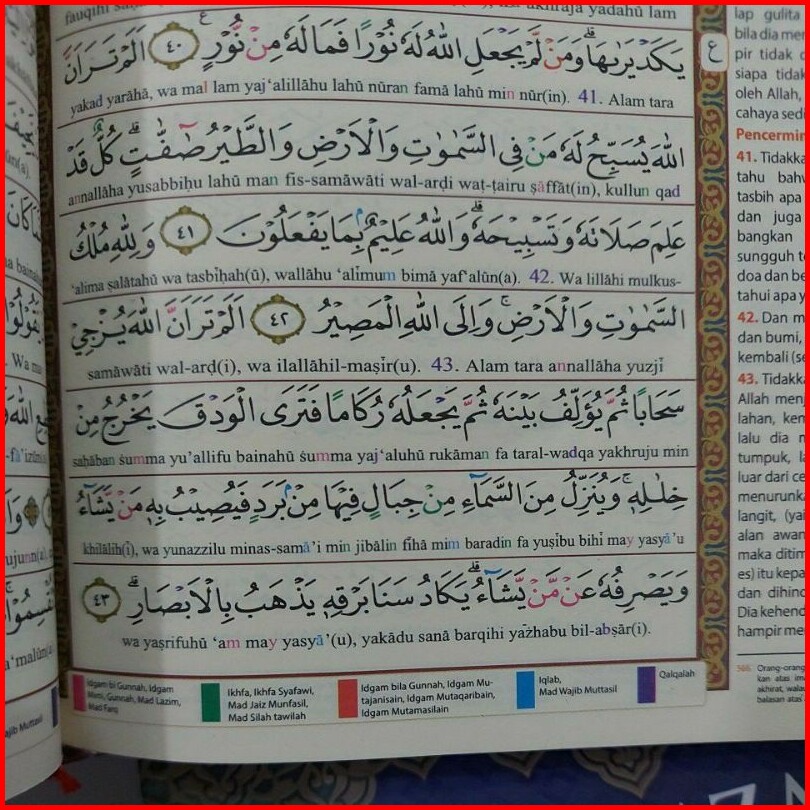 fauqihi
akhraja yadahū lam
يَكَدْ يَرٰىهَاۗ وَمَنْ لَّمْ يَجْعَلِ اللّٰهُ لَهٗ نُوْرًا فَمَا لَهٗ مِنْ نُّوْرٍ ࣖ ٤٠ اَلَمْ تَرَ اَنَّ
yakad yarāhā, wa mal lam yaj'alillāhu lahū nūran famā lahū min nūr(in). 41. Alam tara
اللّٰهَ يُسَبِّحُ لَهٗ مَنْ فِى السَّمٰوٰتِ وَالْاَرْضِ وَالطَّيْرُ صٰۤفّٰتٍۗ كُلٌّ قَدْ
annallāha yusabbiḥu lahū man fis-samāwāti wal-arḍi waṭ-ṭairu ṣāffāt(in), kullun qad
عَلِمَ صَلَاتَهٗ وَتَسْبِيْحَهٗۗ وَاللّٰهُ عَلِيْمٌۢ بِمَا يَفْعَلُوْنَ ٤١ وَلِلّٰهِ مُلْكُ
'alima ṣalātahū wa tasbīḥah(ū), wallāhu 'alīmum bimā yaf'alūn(a). 42. Wa lillāhi mulkus-
السَّمٰوٰتِ وَالْاَرْضِۚ وَاِلَى اللّٰهِ الْمَصِيْرُ ٤٢ اَلَمْ تَرَ اَنَّ اللّٰهَ يُزْجِيْ
samāwāti wal-arḍ(i), wa ilallāhil-maṣīr(u). 43. Alam tara annallāha yuzjī
سَحَابًا ثُمَّ يُؤَلِّفُ بَيْنَهٗ ثُمَّ يَجْعَلُهٗ رُكَامًا فَتَرَى الْوَدْقَ يَخْرُجُ مِنْ
saḥāban ṡumma yu'allifu bainahū ṡumma yaj'aluhū rukāman fa taral-wadqa yakhruju min
خِلٰلِهٖۚ وَيُنَزِّلُ مِنَ السَّمَاۤءِ مِنْ جِبَالٍ فِيْهَا مِنْۢ بَرَدٍ فَيُصِيْبُ بِهٖ مَنْ يَّشَاۤءُ
khilālih(ī), wa yunazzilu minas-samā'i min jibālin fīhā mim baradin fa yuṣību bihī may yasyā'u
وَيَصْرِفُهٗ عَنْ مَّنْ يَّشَاۤءُۗ يَكَادُ سَنَا بَرْقِهٖ يَذْهَبُ بِالْاَبْصَارِۗ ٤٣
wa yaṣrifuhū 'am may yasyā'(u), yakādu sanā barqihī yażhabu bil-abṣār(i).
Idgam bi Gunnah, Idgam
Mimi, Gunnah, Mad Lazim,
Mad Farq
Ikhfa, Ikhfa Syafawi,
Mad Jaiz Munfasil,
Mad Silah tawilah
Idgam bila Gunnah, Idgam Mu-
tajanisain, Idgam Mutaqaribain,
Idgam Mutamasilain
Iqlab,
Mad Wajib Muttasil
Qalqalah
ع
lap gulita
bila dia men
pir tidak d
siapa tidak
oleh Allah,
cahaya sedi
Pencermin
41. Tidakka
tahu bahw
tasbih apa
dan juga
bangkan
sungguh te
doa dan be
tahui apa y
42. Dan m
dan bumi,
kembali (se
43. Tidakka
Allah menj
lahan, kem
lalu dia m
tumpuk, la
luar dari ce
menurunka
langit, (yai
alan awan
maka ditim
es) itu kepa
dan dihind
Dia kehend
hampir me
566 Orang-orang
kan atas ima
akhirat, wala
balasan atas